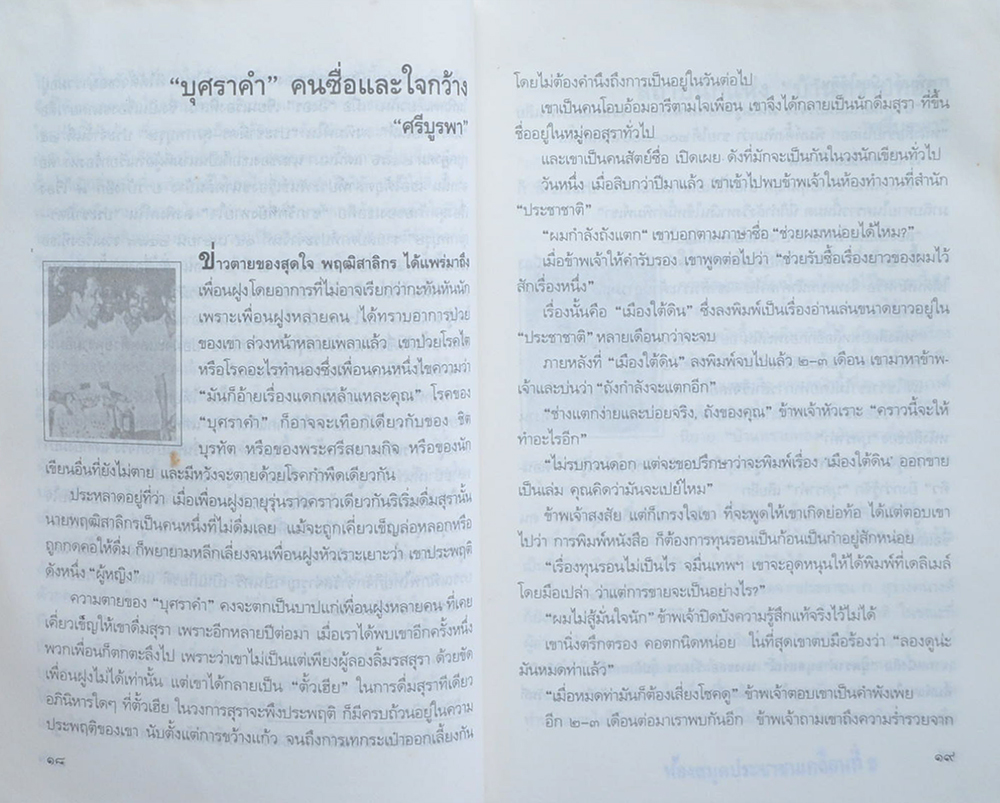 “บุศราคำ” คนซื่อและใจกว้าง
“ศรีบูรพา”
ข่าวตายของสุดใจ พฤฒิสาลิกร ได้แพร่มาถึง
เพื่อนฝูงโดยอาการที่ไม่อาจเรียกว่ากะทันหันนัก
เพราะเพื่อนฝูงหลายคน ได้ทราบอาการป่วย
ของเขา ล่วงหน้าหลายเพลาแล้ว เขาป่วยโรคไต
หรือโรคอะไรทำนองซึ่งเพื่อนคนหนึ่งไขความว่า
“มันก็อ้ายเรื่องแดกเหล้าแหละคุณ” โรคของ
“บุศราคำ” ก็อาจจะเทือกเดียวกับของ ชิต
บุรทัต หรือของพระศรีสยามกิจ หรือของนัก
เขียนอื่นที่ยังไม่ตาย และมีหวังจะตายด้วยโรคกำพืดเดียวกัน
ประหลาดอยู่ที่ว่า เมื่อเพื่อนฝูงอายุรุ่นราวคราวเดียวกันริเริ่มดื่มสุรานั้น
นายพฤฒิสาลิกรเป็นคนหนึ่งที่ไม่ดื่มเลย แม้จะถูกเคี่ยวเข็ญล่อหลอกหรือ
ถูกกดคอให้ดื่ม ก็พยายามหลีกเลี่ยงจนเพื่อนฝูงหัวเราะเยาะว่า เขาประพฤติ
ดังหนึ่ง “ผู้หญิง”
ความตายของ “บุศราคำ” คงจะตกเป็นบาปแก่เพื่อนฝูงหลายคน ที่เคย
เคี่ยวเข็ญให้เขาดื่มสุรา เพราะอีกหลายปีต่อมา เมื่อเราได้พบเขาอีกครั้งหนึ่ง
พวกเพื่อนก็ตกตะลึงไป เพราะว่าเขาไม่เป็นแต่เพียงผู้ลองลิ้มรสสุรา ด้วยขัด
เพื่อนฝูงไม่ได้เท่านั้น แต่เขาได้กลายเป็น “ตั้วเฮีย” ในการดื่มสุราทีเดียว
อภินิหารใดๆ ที่ตั้วเฮีย ในวงการสุราจะพึงประพฤติ ก็มีครบถ้วนอยู่ในความ
ประพฤติของเขา นับตั้งแต่การขว้างแก้ว จนถึงการเทกระเป๋าออกเลี้ยงกัน
๑๘
โดยไม่ต้องคำนึงถึงการเป็นอยู่ในวันต่อไป
เขาเป็นคนโอบอ้อมอารีตามใจเพื่อน เขาจึงได้กลายเป็นนักดื่มสุรา ที่ขึ้น
ชื่ออยู่ในหมู่คอสุราทั่วไป
และเขาเป็นคนสัตย์ซื่อ เปิดเผย ดังที่มักจะเป็นกันในวงนักเขียนทั่วไป
วันหนึ่ง เมื่อสิบกว่าปีมาแล้ว เขาเข้าไปพบข้าพเจ้าในห้องทำงานที่สำนัก
“ประชาชาติ”
“ผมกำลังถังแตก” เขาบอกตามภาษาซื่อ “ช่วยผมหน่อยได้ไหม?”
เมื่อข้าพเจ้าให้คำรับรอง เขาพูดต่อไปว่า “ช่วยรับซื้อเรื่องยาวของผมไว้
สักเรื่องหนึ่ง”
เรื่องนั้นคือ “เมืองใต้ดิน” ซึ่งลงพิมพ์เป็นเรื่องอ่านเล่นขนาดยาวอยู่ใน
“ประชาชาติ” หลายเดือนกว่าจะจบ
ภายหลังที่ “เมืองใต้ดิน” ลงพิมพ์จบไปแล้ว ๒-๓ เดือน เขามาหาข้าพ-
เจ้าและบ่นว่า “ถังกำลังจะแตกอีก”
“ช่างแตกง่ายและบ่อยจริง, ถังของคุณ” ข้าพเจ้าหัวเราะ “คราวนี้จะให้
ทำอะไรอีก”
“ไม่รบกวนดอก แต่จะขอปรึกษาว่าจะพิมพ์เรื่อง ‘เมืองใต้ดิน’ ออกขาย
เป็นเล่ม คุณคิดว่ามันจะเปย์ไหม”
ข้าพเจ้าสงสัย แต่ก็เกรงใจเขา ที่จะพูดให้เขาเกิดย่อท้อ ได้แต่ตอบเขา
ไปว่า การพิมพ์หนังสือ ก็ต้องการทุนรอนเป็นก้อนเป็นกำอยู่สักหน่อย
“เรื่องทุนรอนไม่เป็นไร จมื่นเทพฯ เขาจะอุดหนุนให้ได้พิมพ์ที่เดลิเมล์
โดยมือเปล่า ว่าแต่การขายจะเป็นอย่างไร?”
“ผมไม่สู้มั่นใจนัก” ข้าพเจ้าปิดบังความรู้สึกแท้จริงไว้ไม่ได้
เขานิ่งตรึกตรอง คอตกนิดหน่อย ในที่สุดเขาตบมือร้องว่า “ลองดูน่ะ
มันหมดท่าแล้ว”
“เมื่อหมดท่ามันก็ต้องเสี่ยงโชคดู” ข้าพเจ้าตอบเขาเป็นคำพังเพย
อีก ๒-๓ เดือนต่อมาเราพบกันอีก ข้าพเจ้าถามเขาถึงความร่ำรวยจาก
๑๙